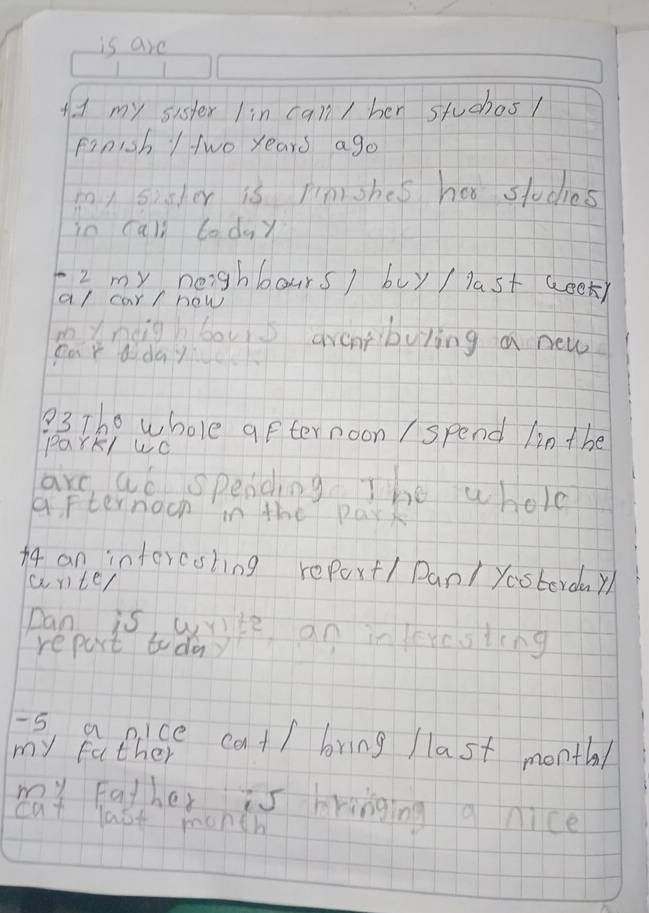 is are
+1 my sister / in cali / her studies /
Finish / two years ago
my sister is finishes her studies
in cali today
- 2 my neighbours / buy / last week /
a / car / new
my neighbours arent buying a new
car today
?3 The whole afternoon / spend / in the
park / we
are we spending The whole
afternoon in the park
+4 an interesting report / Dan / Yesterday /
write /
Dan is write an interesting
report today
-5 a nice cat / bring / last month /
my father
my Father is bringing a nice
cat last month